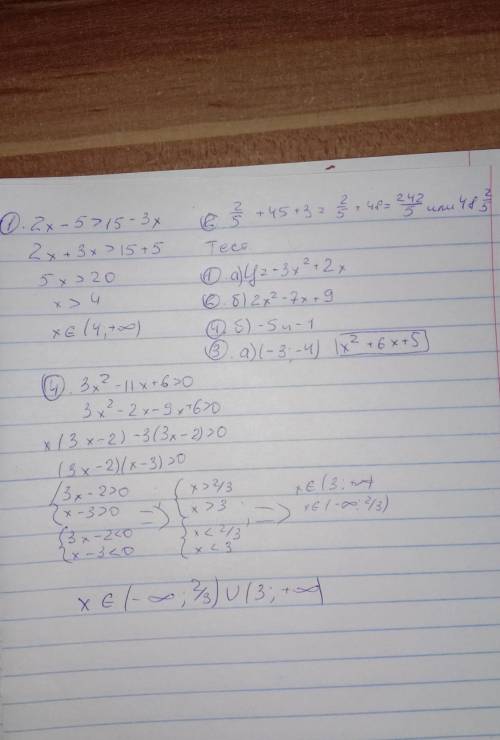 ①. 2x - 5 > 15 - 3x
2x + 3x > 15 + 5
5x > 20
x > 4
x ∈ (4; +∞)
2/5 + 45 + 3 = 2/5 + 48 = 242/5 или 48 2/5
Тест
①. а) y = -3x² + 2x
⑥. б) 2x² - 7x + 9
④. б) -5 и -1
③. а) (-3; -4) x² + 6x + 5
④. 3x² - 11x + 6 > 0
3x² - 2x - 9x + 6 > 0
x(3x - 2) - 3(3x - 2) > 0
(3x - 2)(x - 3) > 0
{3x - 2 > 0 {x > 2/3 x ∈ (3; +∞)
{x - 3 > 0 => {x > 3 ; => x ∈ (-∞; 2/3)
{3x - 2 < 0 {x < 2/3
{x - 3 < 0 {x < 3
x ∈ (-∞; 2/3) ∪ (3; +∞)